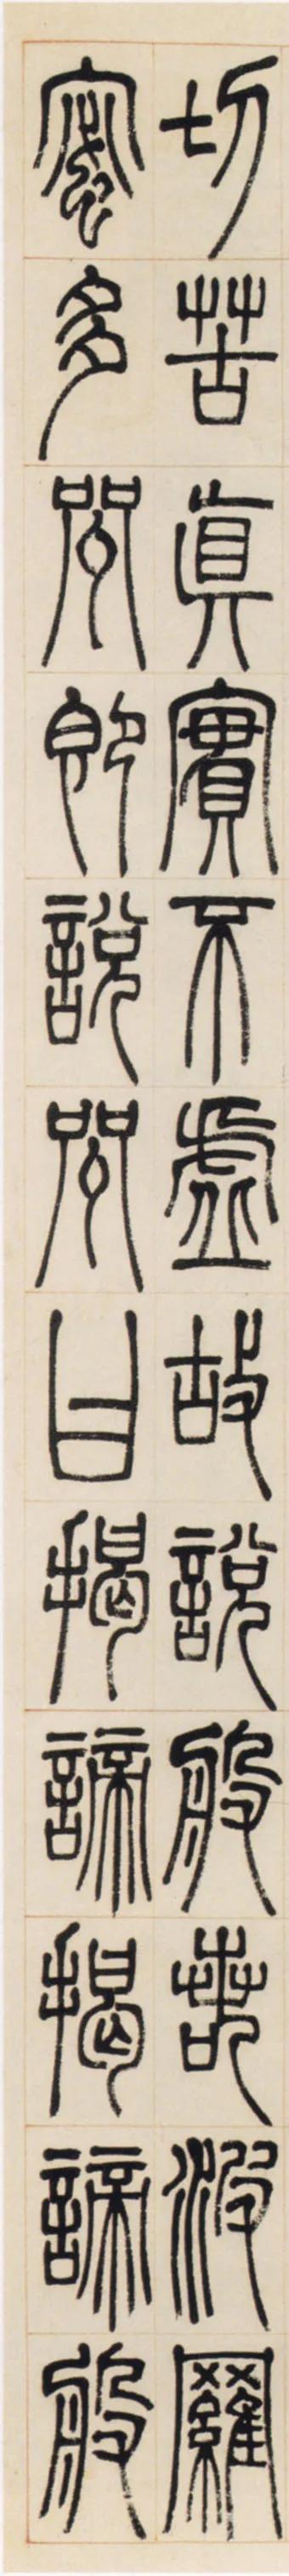 切苦真實不虛故說般若波羅
蜜多咒即說咒曰揭諦揭諦般